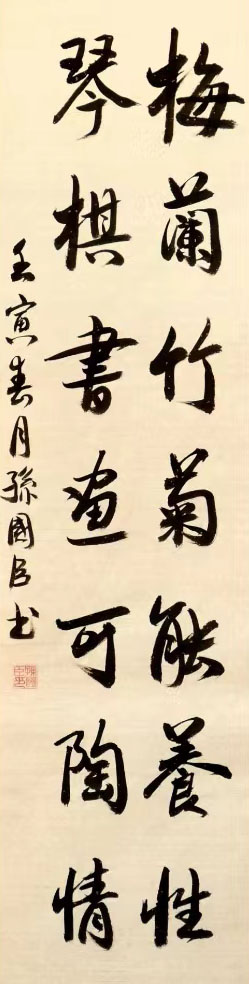 梅蘭竹菊能養性
琴棋書畫可陶情
壬寅春月孫國良书